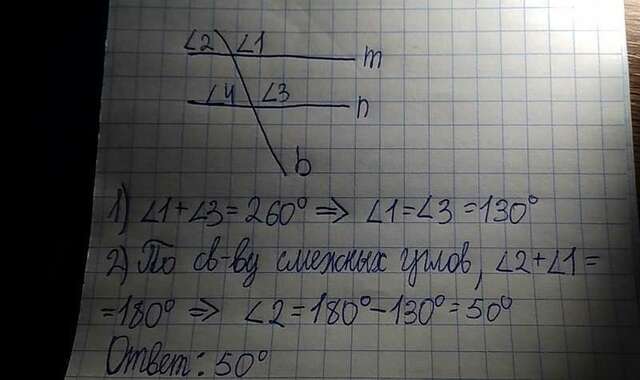 ∠2 ∠1
m
∠4 ∠3
n
b
1) ∠1+∠3=260° => ∠1=∠3=130°
2) По св-ву смежных углов, ∠2+∠1=
=180° => ∠2=180°-130°=50°
Ответ: 50°